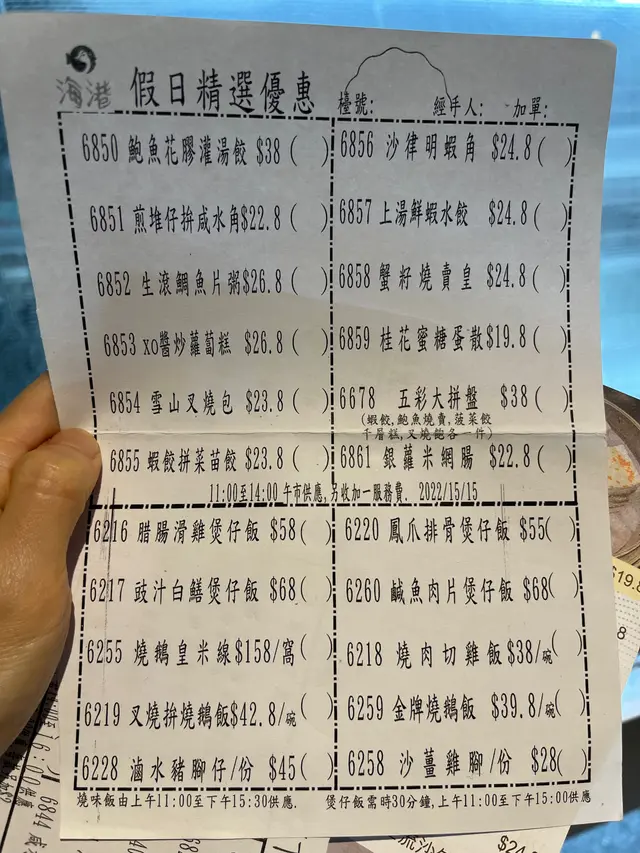 海港 假日精選優惠
檯號: 經手人: 加單:
6850 鮑魚花膠灌湯餃 $38 ( )
6851 煎堆仔拚咸水角$22.8 ( )
6852 生滾鯛魚片粥$26.8 ( )
6853 xo醬炒蘿蔔糕 $26.8 ( )
6854 雪山叉燒包 $23.8 ( )
6855 蝦餃拼菜苗餃 $23.8 ( )
6856 沙律明蝦角 $24.8 ( )
6857 上湯鮮蝦水餃 $24.8 ( )
6858 蟹籽燒賣皇 $24.8 ( )
6859 桂花蜜糖蛋散$19.8 ( )
6678 五彩大拼盤 $38 ( )
(蝦餃,鮑魚燒賣,菠菜餃
千層糕,叉燒飽各一件)
6861 銀蘿米網腸 $22.8 ( )
11:00至14:00 午市供應,另收加一服務費. 2022/15/15
6216 腊腸滑雞煲仔飯 $58 ( )
6217 豉汁白鱔煲仔飯 $68 ( )
6255 燒鵝皇米線$158/窩 ( )
6219 叉燒拚燒鵝飯$42.8/碗 ( )
6228 滷水豬腳仔/份 $45 ( )
6220 鳳爪排骨煲仔飯 $55( )
6260 鹹魚肉片煲仔飯 $68( )
6218 燒肉切雞飯$38/碗( )
6259 金牌燒鵝飯$39.8/碗( )
6258 沙薑雞腳/份 $28( )
燒味飯由上午11:00至下午15:30供應.
煲仔飯需時30分鐘,上午11:00至下午15:00供應
$19.8
8
6844
$24